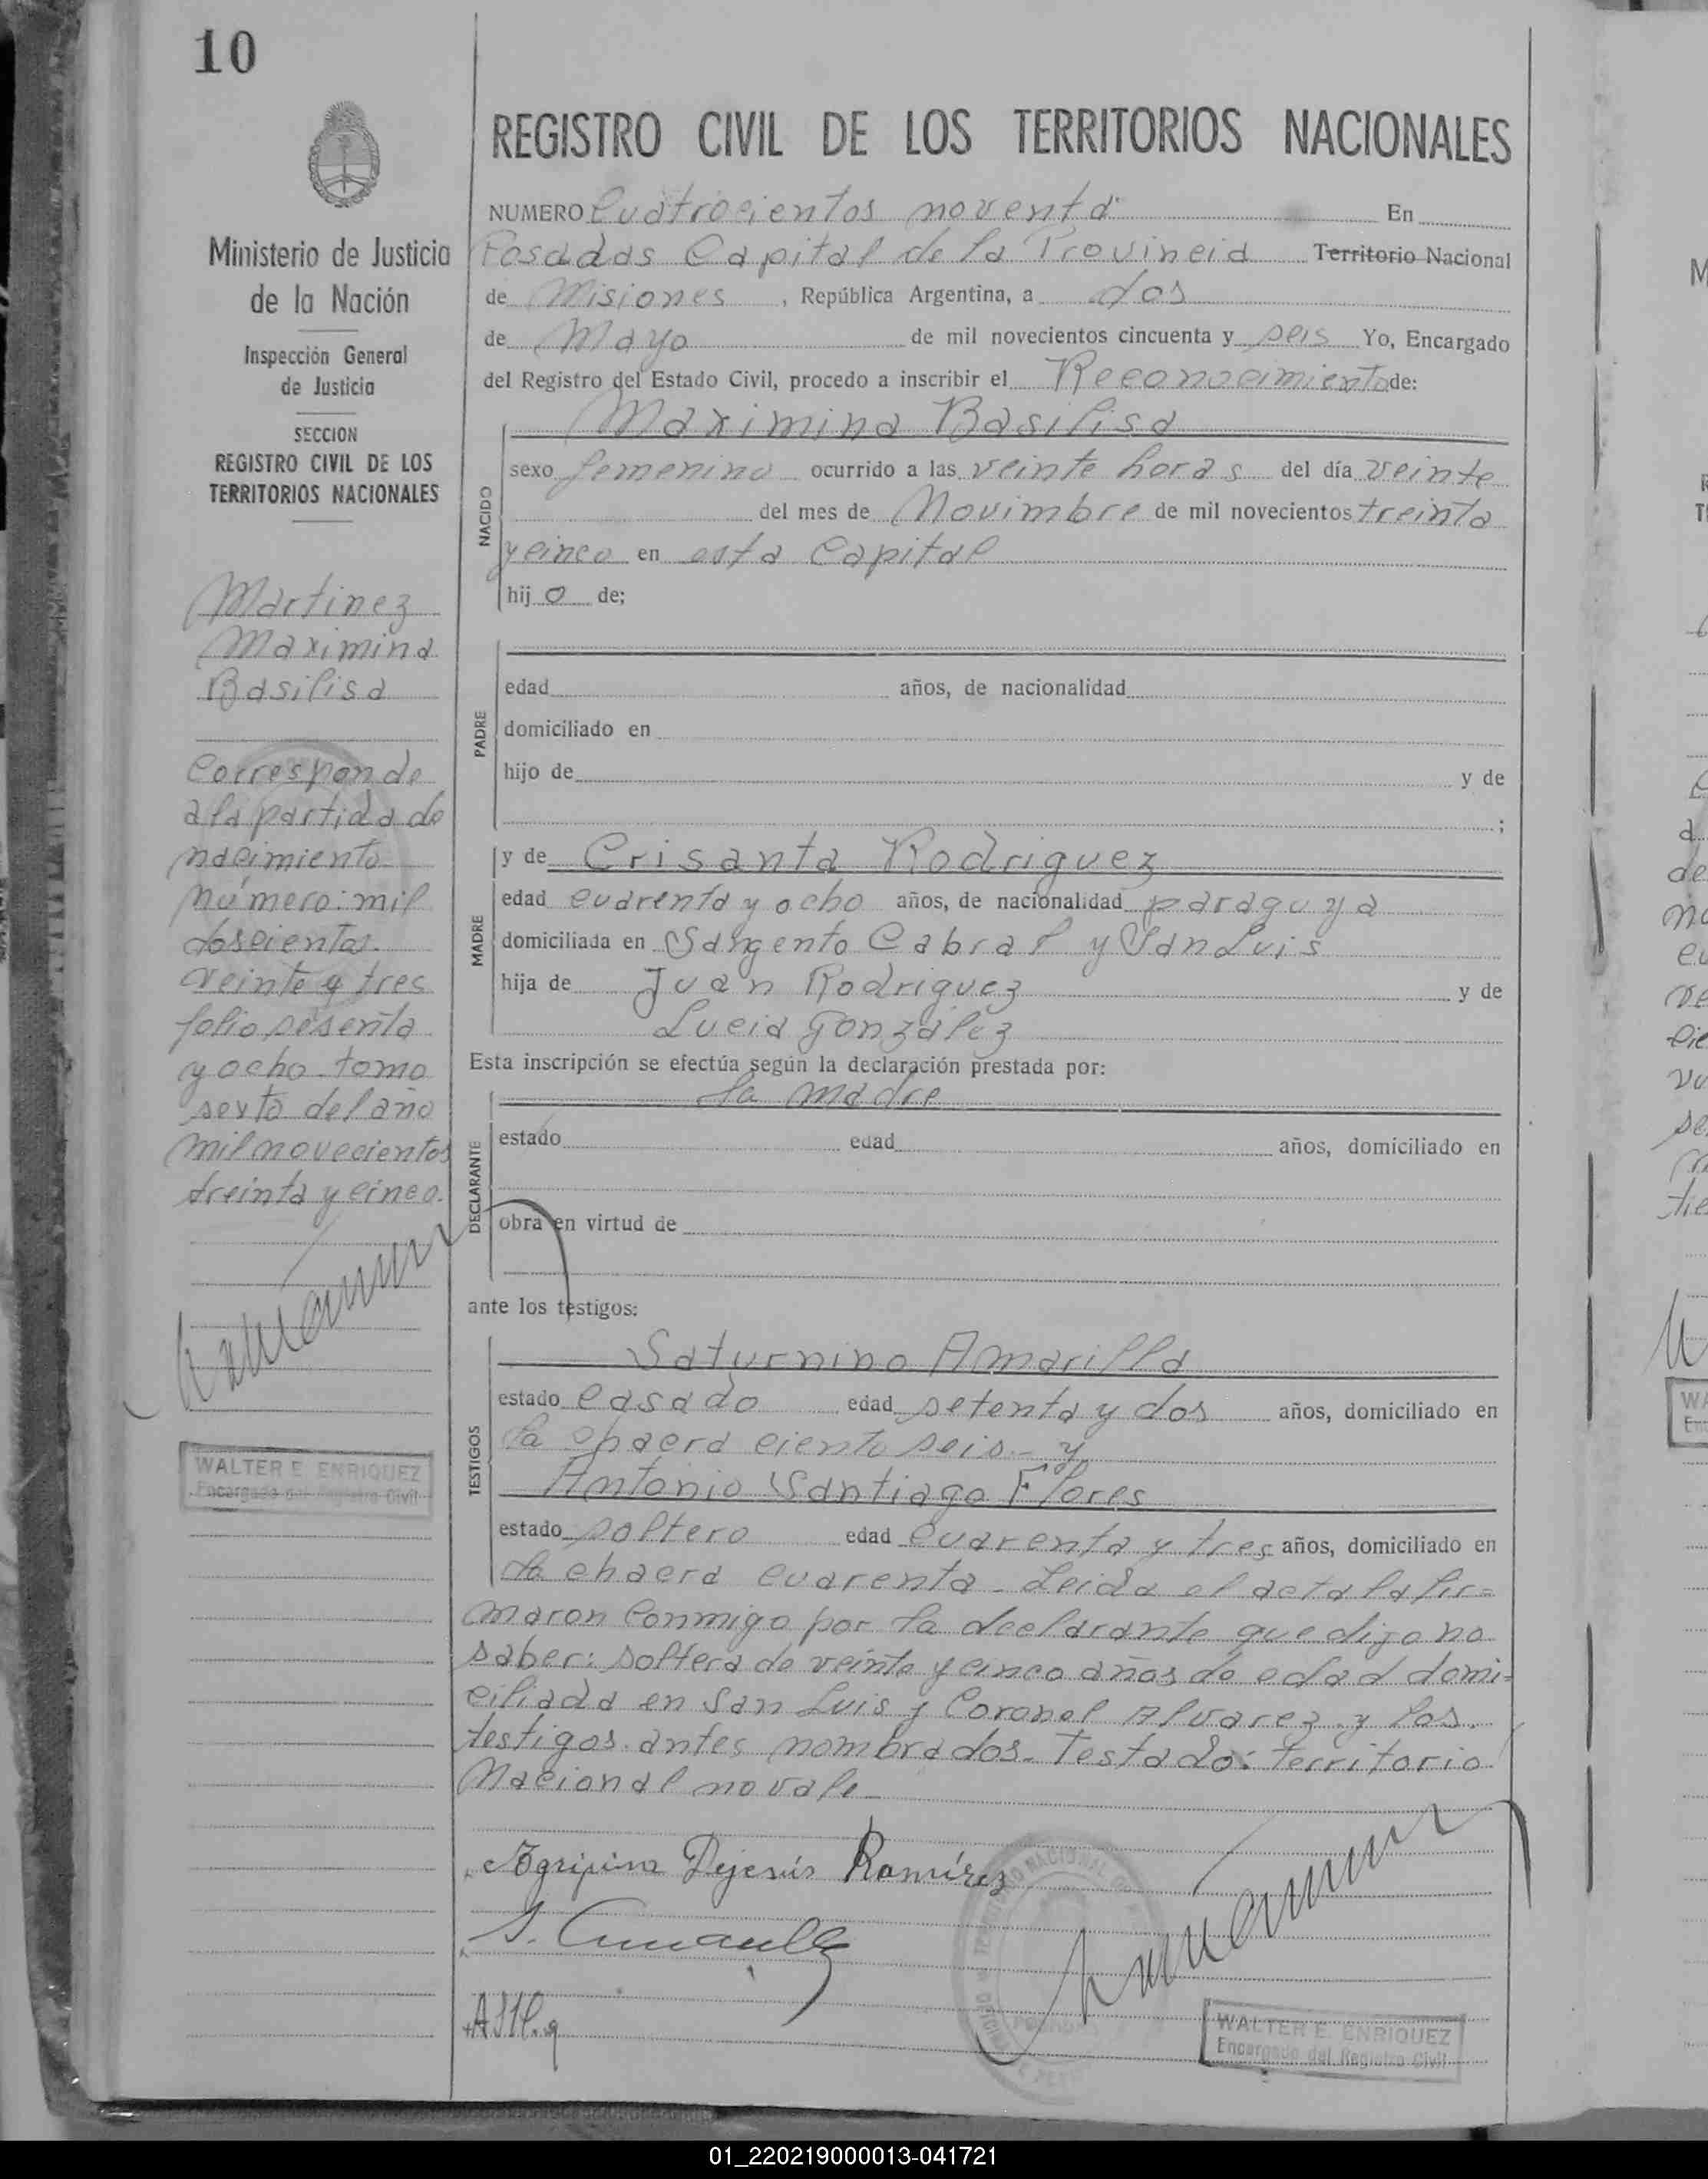 10
REGISTRO CIVIL DE LOS TERRITORIOS NACIONALES
Ministerio de Justicia
de la Nación
Inspección General
de Justicia
SECCION
REGISTRO CIVIL DE LOS
TERRITORIOS NACIONALES
Martinez
Maximina
Basilisa
Corresponde
a la partida de
nacimiento
número: mil
doscientos
veinte y tres
folio sesenta
y ocho tomo
sexto del año
mil novecientos
treinta y cinco.
WALTER E. ENRIQUEZ
Encargado del Registro Civil
NUMERO Cuatrocientos noventa En
Posadas Capital de la Provincia Territorio Nacional
de Misiones, República Argentina, a dos
de Mayo de mil novecientos cincuenta y seis Yo, Encargado
del Registro del Estado Civil, procedo a inscribir el Reconocimiento de:
Maximina Basilisa
NACIDO
sexo femenino ocurrido a las veinte horas del día veinte
del mes de Novimbre de mil novecientos treinta
y cinco en esta Capital
hij o de;
PADRE
edad años, de nacionalidad
domiciliado en
hijo de y de
;
MADRE
y de Crisanta Rodriguez
edad cuarenta y ocho años, de nacionalidad paraguya
domiciliada en Sargento Cabral y San Luis
hija de Juan Rodriguez y de
Lucia Gonzalez
Esta inscripción se efectúa según la declaración prestada por:
la madre
DECLARANTE
estado edad años, domiciliado en
obra en virtud de
ante los testigos:
TESTIGOS
Saturnino Amarilla
estado casado edad setenta y dos años, domiciliado en
la chacra ciento seis - y
Antonio Santiago Flores
estado soltero edad cuarenta y tres años, domiciliado en
la chacra cuarenta - Leida el acta la fir=
maron Conmigo por la declarante que dijo no
saber: soltera de veinte y cinco años de edad domi=
ciliada en San Luis y Coronel Alvarez y los
testigos antes nombrados - Testado: territorio
Nacional no vale
Agripina Dejesús Ramírez
WALTER E. ENRIQUEZ
Encargado del Registro Civil
01_220219000013-041721